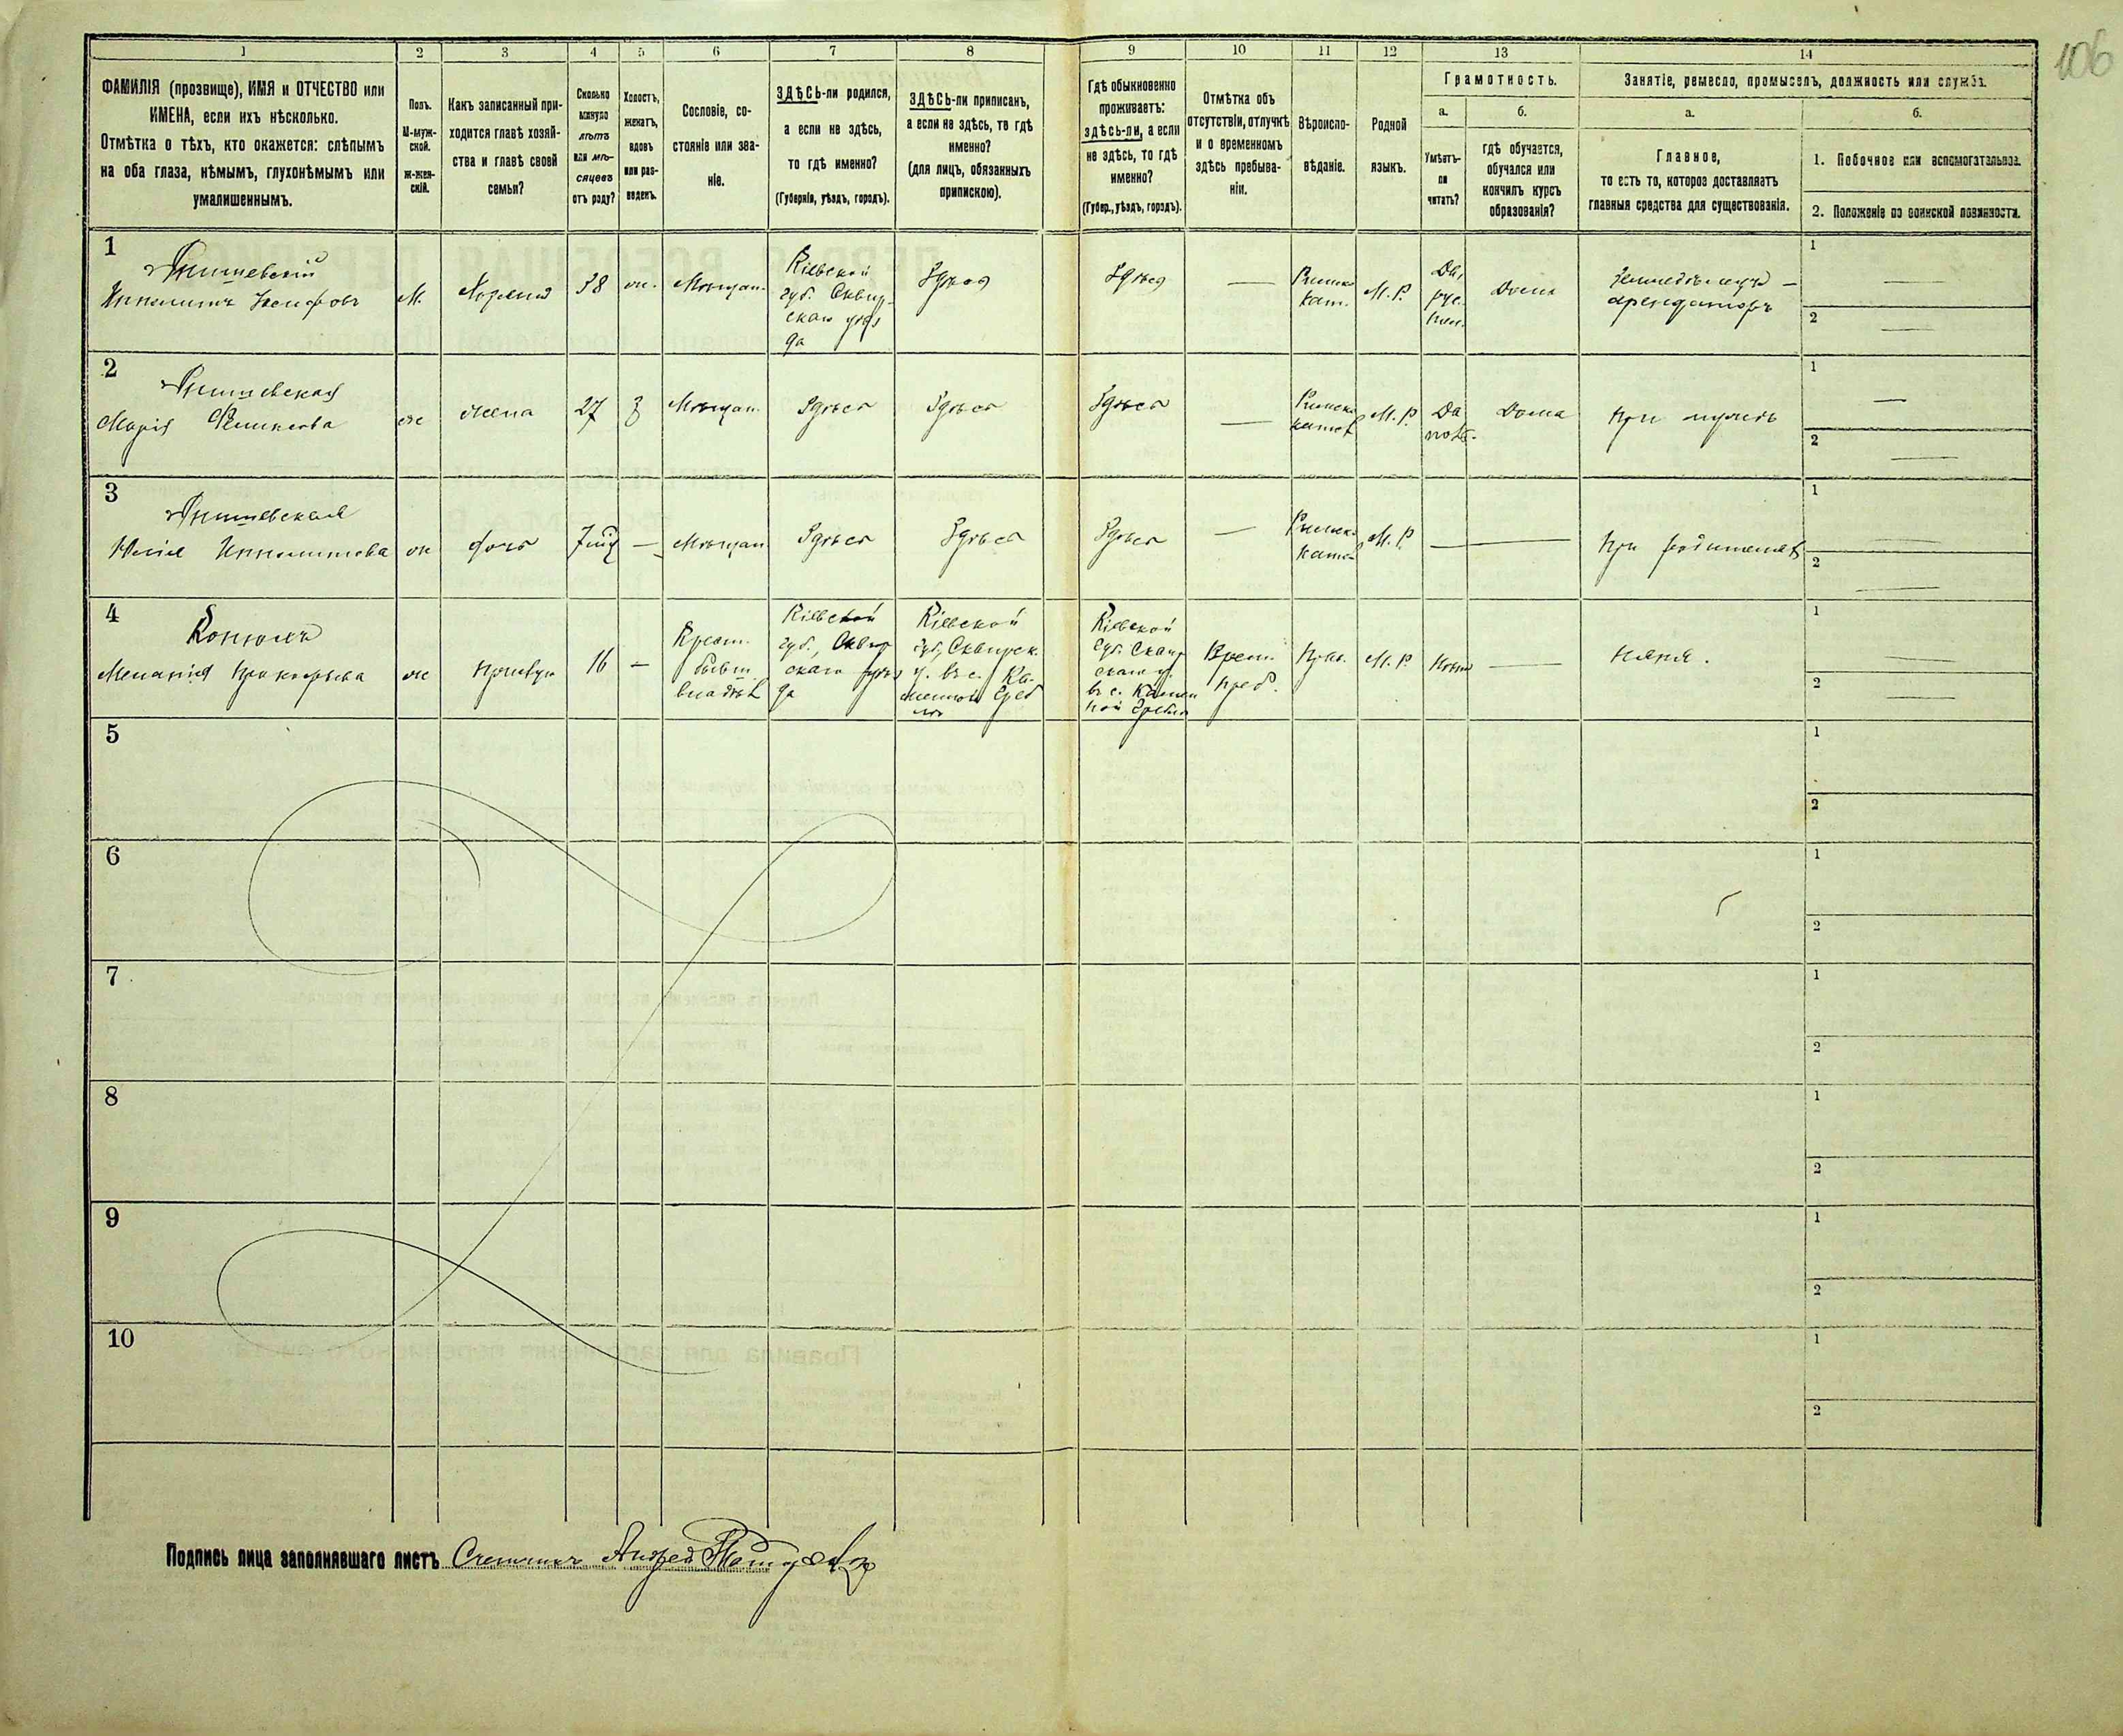 106
1 2 3 4 5 6 7 8 9 10 11 12 13 14
ФАМИЛІЯ (прозвище), ИМЯ и ОТЧЕСТВО или
ИМЕНА, если ихъ нѣсколько.
Отмѣтка о тѣхъ, кто окажется: слѣпымъ
на оба глаза, нѣмымъ, глухонѣмымъ или
умалишеннымъ.
Полъ.
М-муж-
ской.
Ж-жен-
скій.
Какъ записанный при-
ходится главѣ хозяй-
ства и главѣ своей
семьи?
Сколько
минуло
лѣтъ
или мѣ-
сяцевъ
отъ роду?
Холостъ,
женатъ,
вдовъ
или раз-
веденъ.
Сословіе, со-
стояніе или зва-
ніе.
ЗДѢСЬ-ли родился,
а если не здѣсь,
то гдѣ именно?
(Губернія, уѣздъ, городъ).
ЗДѢСЬ-ли приписанъ,
а если не здѣсь, то гдѣ
именно?
(для лицъ, обязанныхъ
припискою).
Гдѣ обыкновенно
проживаетъ:
здѣсь-ли, а если
не здѣсь, то гдѣ
именно?
(Губер., уѣздъ, городъ).
Отмѣтка объ
отсутствіи, отлучкѣ
и о временномъ
здѣсь пребыва-
ніи.
Вѣроиспо-
вѣданіе.
Родной
языкъ.
Грамотность.
а.
Умѣетъ-
ли
читать?
б.
гдѣ обучается,
обучался или
кончилъ курсъ
образованія?
Занятіе, ремесло, промыселъ, должность или служба.
а.
Главное,
то есть то, которое доставляетъ
главныя средства для существованія.
б.
1. Побочное или вспомогательное.
2. Положеніе по воинской повинности.
1
Ипполитъ Іосифовъ
М.
Хозяинъ
38
ж.
Мѣщан.
Кіевской
губ. Сквир-
скаго уѣз
да
Здѣсь
Здѣсь
—
Римско
кат.
М. Р.
Да,
рус.
Дома
Земледѣлецъ -
арендаторъ
1 —
2 —
2
Марія
ж
жена
27
з
Мѣщан.
Здѣсь
Здѣсь
Здѣсь
—
Римско
катол
М. Р.
Да
Дома
при мужѣ
1 —
2 —
3
Ипполитова
ж
дочь
—
Мѣщан
Здѣсь
Здѣсь
Здѣсь
—
Римско
катол
М. Р.
—
При родителяхъ
1 —
2 —
4
Меланія
ж
16
—
Крест.
бывш.
владѣл
Кіевской
губ., Сквир
скаго уѣз
да
Кіевской
губ., Сквирск.
у. въ с. Ка-
менной Греб
лѣ
Кіевской
губ. Сквир
скаго у.
въ с. Камен
ной Греблѣ
Врем.
преб.
Прав.
М. Р.
Нѣтъ
—
няня.
1 —
2 —
5
1
2
6
1
2
7
1
2
8
1
2
9
1
2
10
1
2
Подпись лица заполнявшаго листъ Счетчикъ Андрей